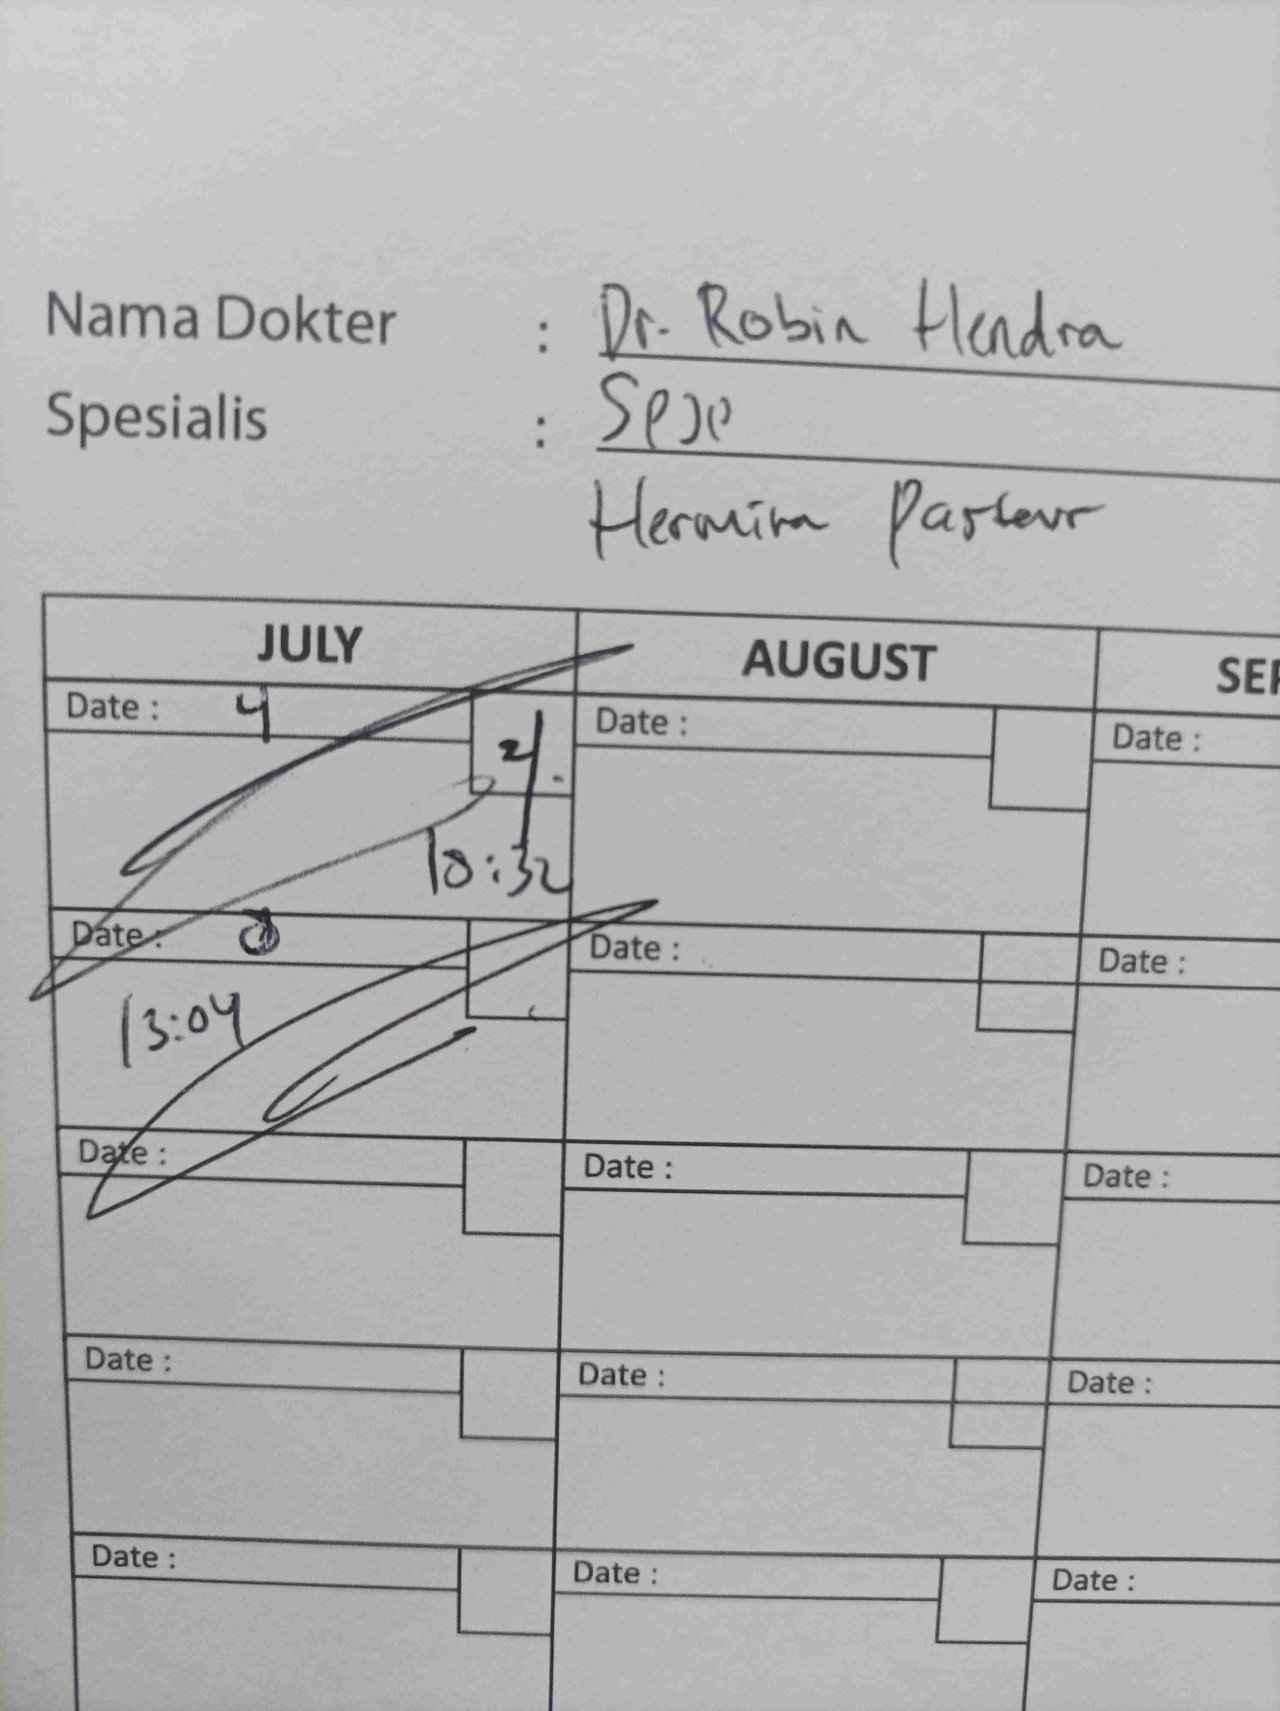 Nama Dokter : Dr. Robin Hendra
Spesialis : SpJP
Hermina Pasteur
JULY AUGUST SEP
Date : 4 Date : Date :
10:32
Date : 8 Date : Date :
13:04
Date : Date : Date :
Date : Date : Date :
Date : Date : Date :